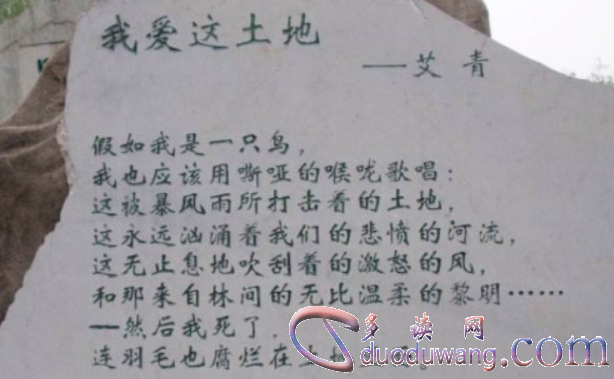 我爱这土地
——艾青
假如我是一只鸟,
我也应该用嘶哑的喉咙歌唱:
这被暴风雨所打击着的土地,
这永远汹涌着我们的悲愤的河流,
这无止息地吹刮着的激怒的风,
和那来自林间的无比温柔的黎明……
—然后我死了,
连羽毛也腐烂在土地
多读网
duoduwang.com